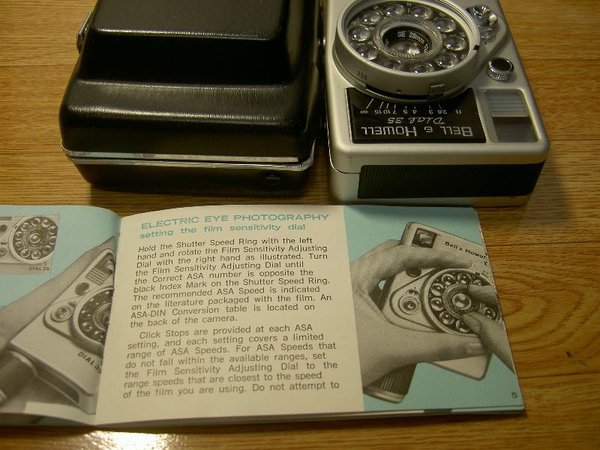 BELL & HOWELL
Dial 35
ELECTRIC EYE PHOTOGRAPHY
setting the film sensitivity dial
Hold the Shutter Speed Ring with the left
hand and rotate the Film Sensitivity Adjusting
Dial with the right hand as illustrated. Turn
the Film Sensitivity Adjusting Dial until
the Correct ASA number is opposite the
black Index Mark on the Shutter Speed Ring.
The recommended ASA Speed is indicated
on the literature packaged with the film. An
ASA-DIN Conversion table is located on
the back of the camera.
Click Stops are provided at each ASA
setting, and each setting covers a limited
range of ASA Speeds. For ASA Speeds that
do not fall within the available ranges, set
the Film Sensitivity Adjusting Dial to the
range speeds that are closest to the speed
of the film you are using. Do not attempt to
DIAL 35
DIAL 35
Bell & Howell
5